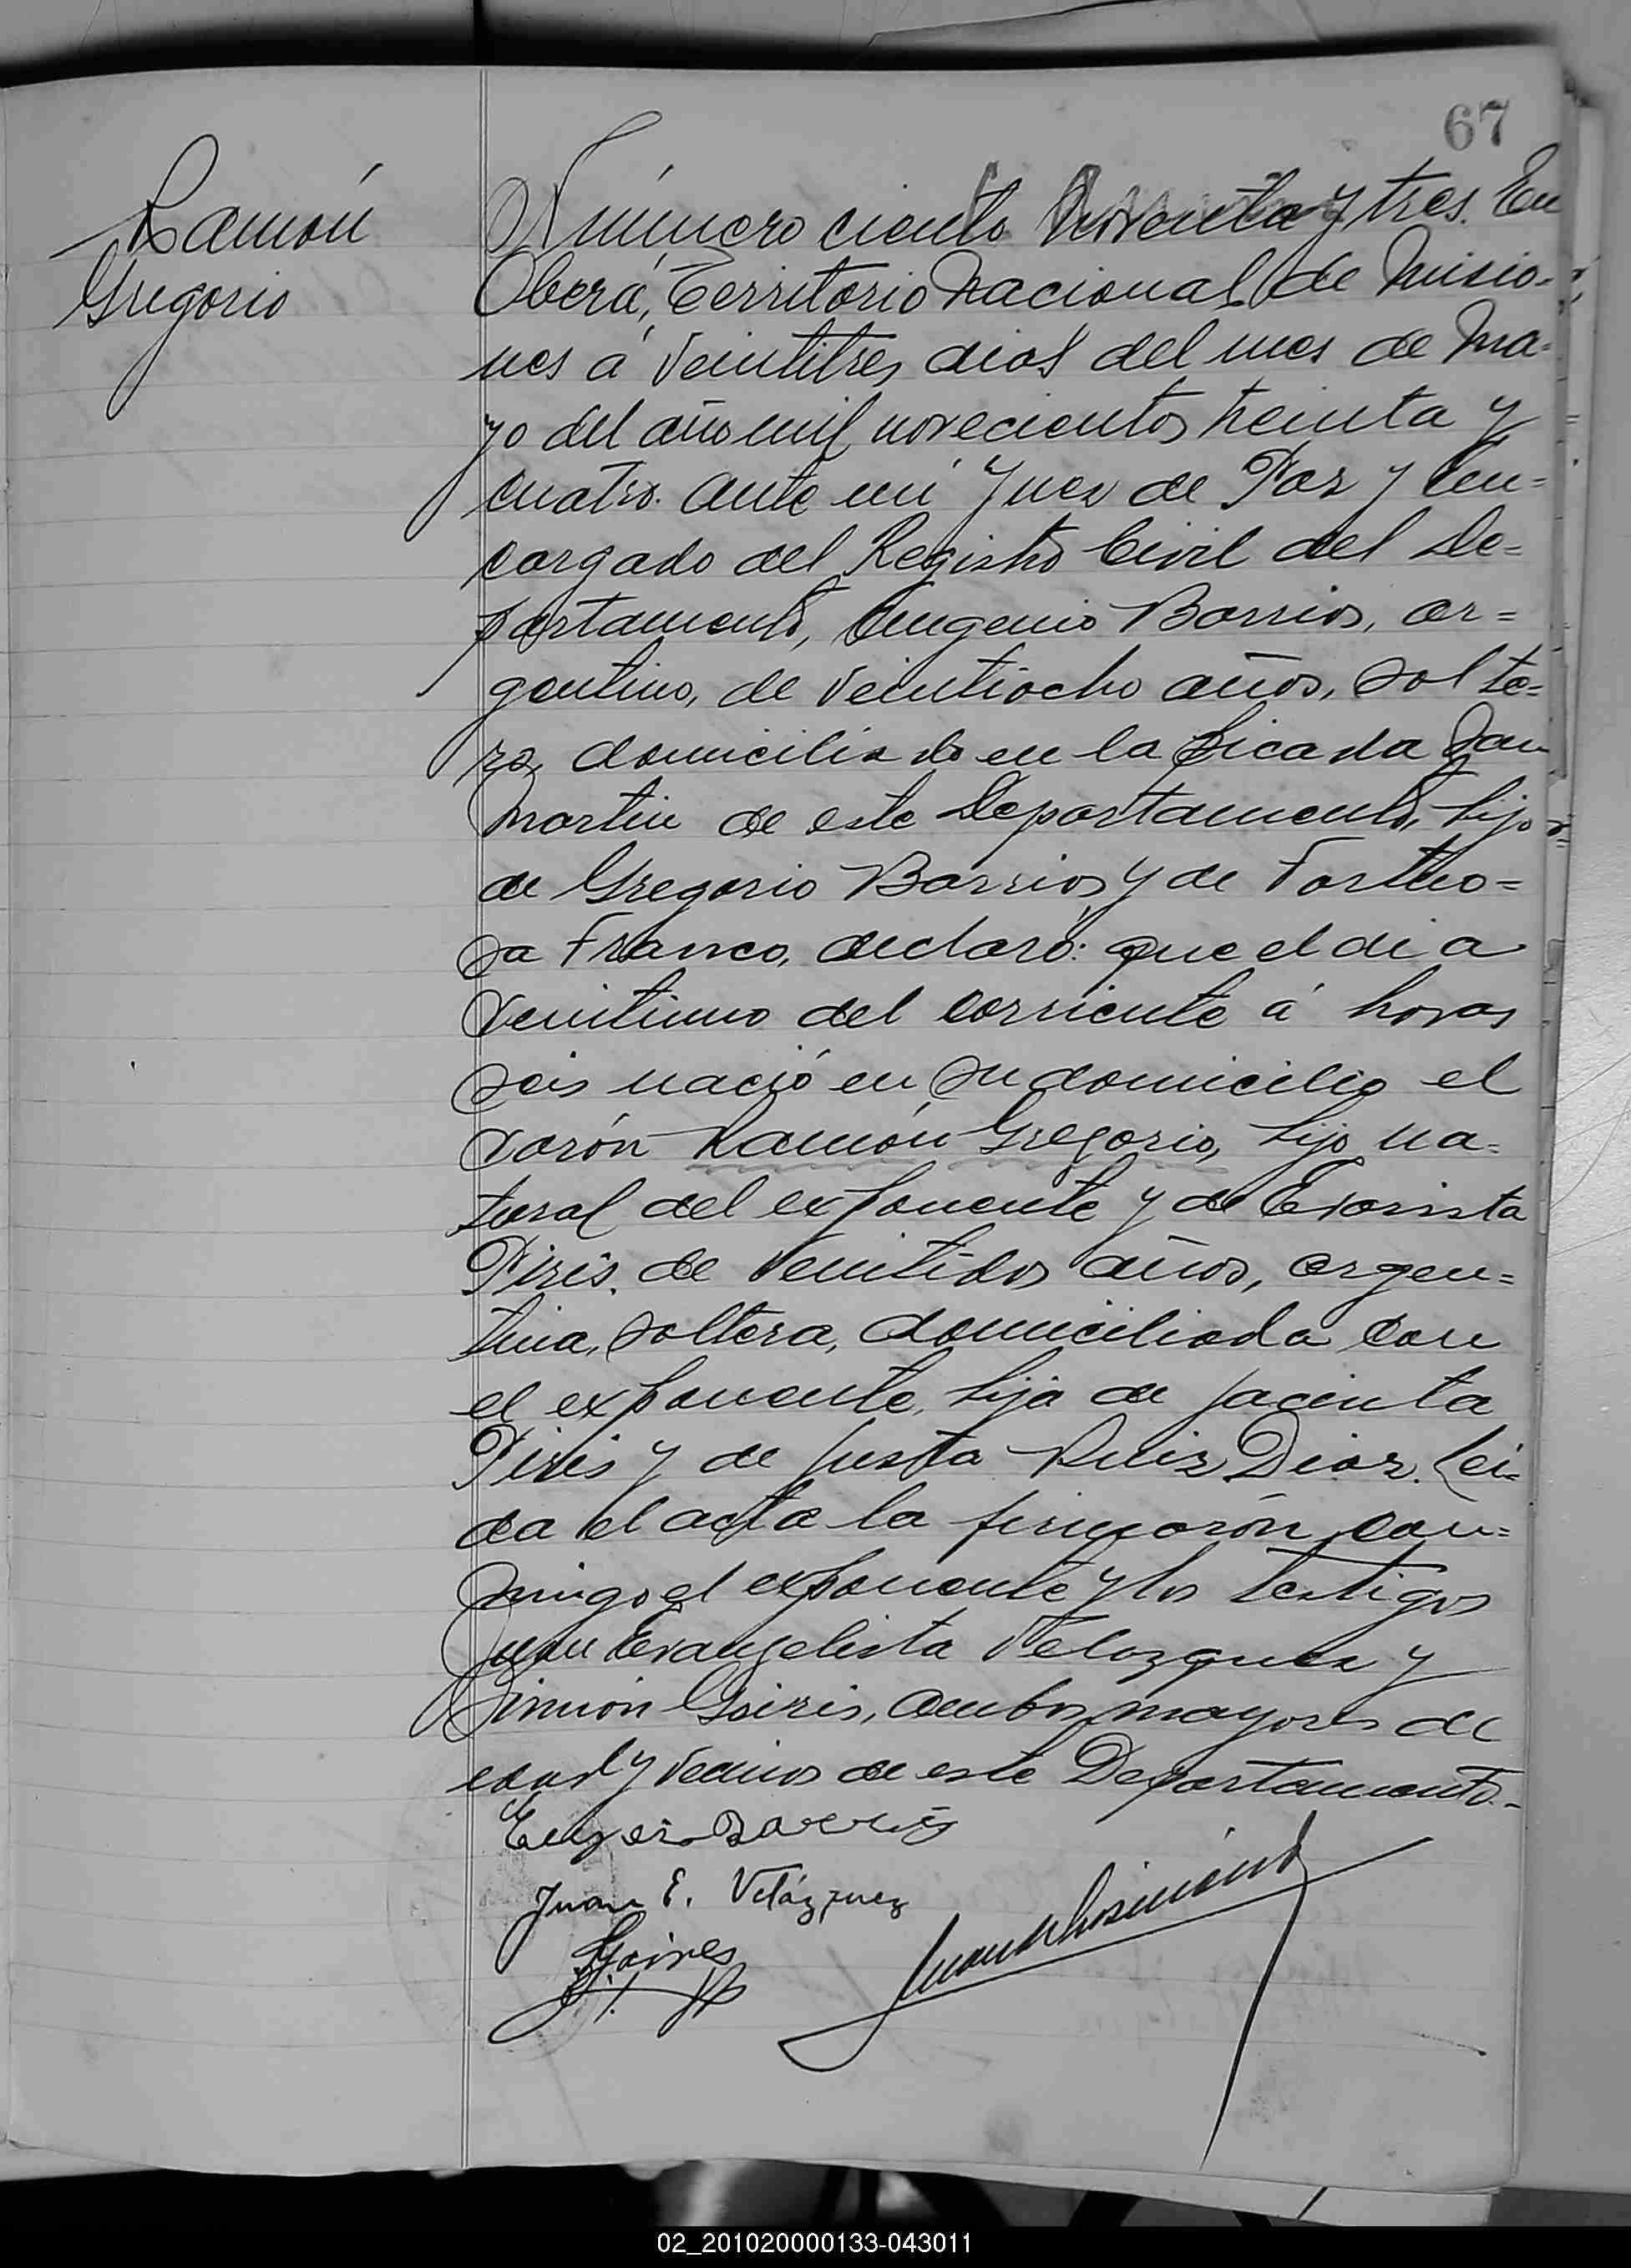 67
Ramón
Gregorio
Número ciento noventa y tres. En
Oberá, Territorio Nacional de Misio-
nes á veintitres dias del mes de Ma-
yo del año mil novecientos treinta y
cuatro. ante mi Juez de Paz y En=
cargado del Registro Civil del De=
partamento, Eugenio Barrios, ar=
gentino, de veintiocho años, solte=
ro, domiciliado en la Picada San
Martin de este Departamento, hijo
de Gregorio Barrios y de Fortuo=
sa Franco, declaró: que el dia
veintiuno del corriente á horas
seis nació en su domicilio el
varón Ramón Gregorio, hijo na=
tural del exponente y de Evarista
Piris, de veintidos años, argen=
tina, soltera, domiciliada con
el exponente, hija de Jacinta
Piris y de Justa Ruiz Diaz. Lei=
da el acta la firmarón con=
migo el exponente y los testigos
Juan Evangelista Velazquez y
Simión Gsiris, ambos mayores de
edad y vecinos de este Departamento.-
Eugenio Barrios
Juan E. Velázquez
02_201020000133-043011